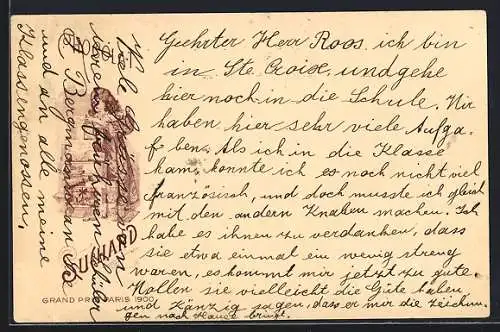 Geehrter Herr Roos, ich bin
in Ste Croix, und gehe
hier noch in die Schule. Wir
haben hier sehr viele Aufga-
ben. Als ich in die Klasse
kam, konnte ich es noch nicht viel
französisch, und doch musste ich gleich
mit den andern Knaben machen. Ich
habe es ihnen zu verdanken, dass
sie etwa einmal ein wenig streng
waren, es kommt mir jetzt zu gute.
Wollen sie vielleicht die Güte haben,
und Känzig sagen, dass er mir die Zeichnun-
gen nach Hause bringt.
Viele Grüsse von
ihrem früheren Schüler
und an alle meine
Klassengenossen.
GRAND PRIX PARIS 1900